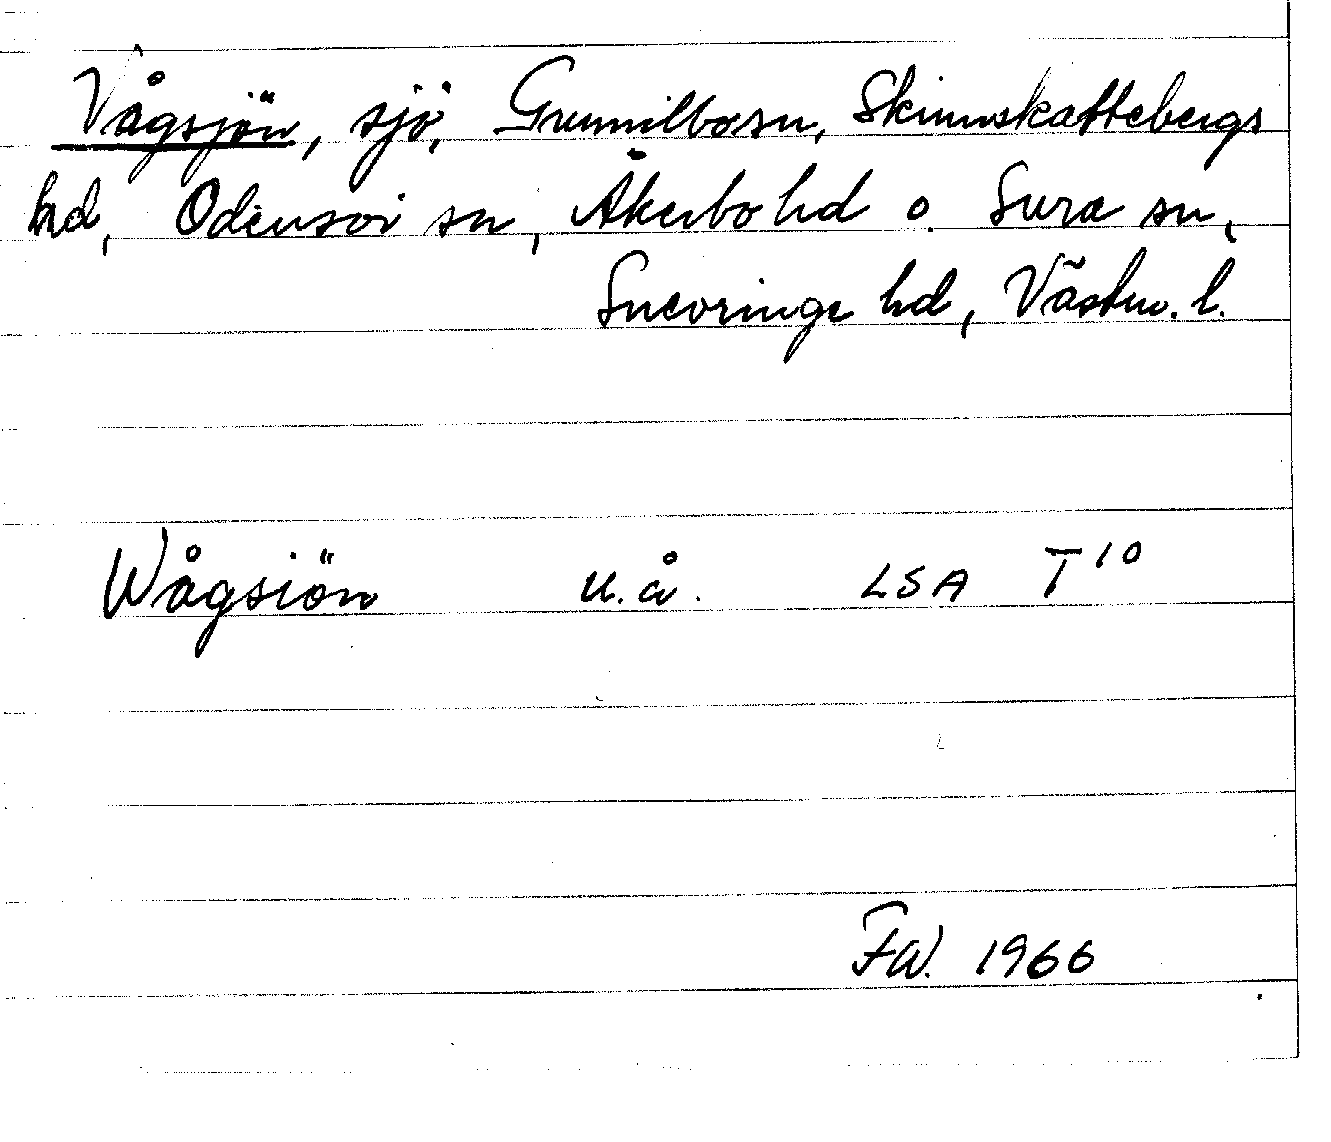 Vågsjön, sjö, Gunnilbo sn, Skinnskattebergs
hd, Odensvi sn, Åkerbo hd o. Sura sn,
Snevringe hd, Västm. l.
Wågsiön u.å. LSA T10
FW. 1966